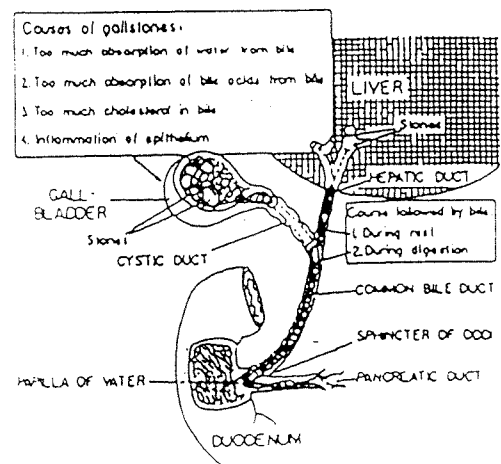 Causes of gallstones:
1. Too much absorption of water from bile
2. Too much absorption of bile acids from bile
3. Too much cholesterol in bile
4. Inflammation of epithelium
LIVER
Stones
HEPATIC DUCT
GALL-
BLADDER
Stones
CYSTIC DUCT
Course followed by bile
1. During rest
2. During digestion
COMMON BILE DUCT
SPHINCTER OF ODDI
PAPILLA OF VATER
PANCREATIC DUCT
DUODENUM